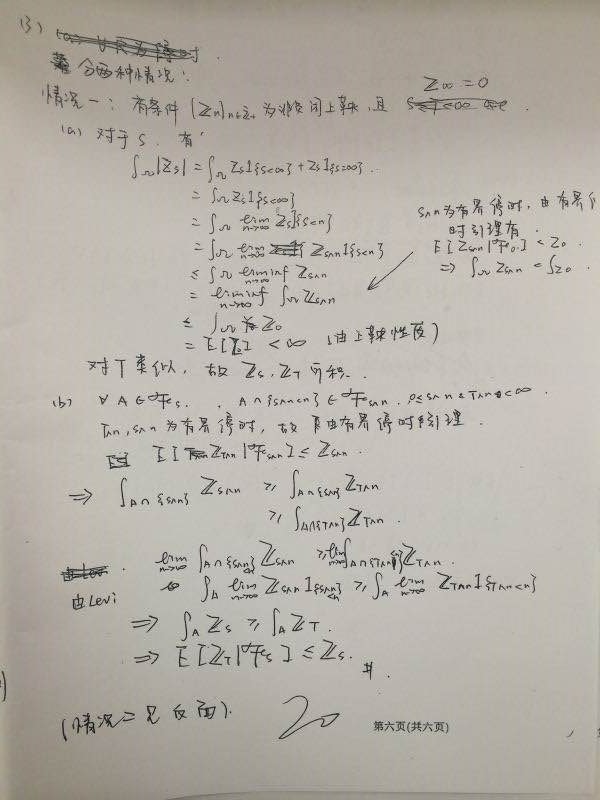 (3)
分两种情况：
情况一：有条件 {Zn}n∈Z+ 为非负闭上鞅，且 Z∞=0
(a) 对于S，有
∫Ω|Zs| = ∫Ω Zs1{s<∞} + Zs1{s=∞}.
= ∫Ω Zs1{s<∞}
= ∫Ω lim n→∞ Zs1{s<n}
= ∫Ω lim n→∞ Zs∧n1{s<n}
≤ ∫Ω lim inf n→∞ Zs∧n
= lim inf n→∞ ∫Ω Zs∧n
≤ ∫Ω Z0
= E[Z0] < ∞ (由上鞅性质)
s∧n为有界停时，由有界停
时引理有
E[Zs∧n|Fo] < Z0
⇒ ∫Ω Zs∧n = ∫Z0
对T类似，故 Zs, ZT 可积.
(b) ∀A∈Fs, A∩{s∧n<n}∈Fs∧n. 0≤s∧n≤T∧n<∞
T∧n, s∧n 为有界停时，故由有界停时引理
E[ZT∧n|Fs∧n] ≤ Zs∧n.
⇒ ∫A∩{s∧n} Zs∧n ≥ ∫A∩{s∧n} ZT∧n
≥ ∫A∩{T∧n} ZT∧n.
lim n→∞ ∫A∩{s∧n<n} Zs∧n ≥ lim n→∞ ∫A∩{T∧n<n} ZT∧n.
由Levi ⇔ ∫A lim n→∞ Zs∧n 1{s∧n<n} ≥ ∫A lim n→∞ ZT∧n1{T∧n<n}
⇒ ∫A Zs ≥ ∫A ZT.
⇒ E[ZT|Fs] ≤ Zs. #
(情况二见反面).
20
第六页(共六页)